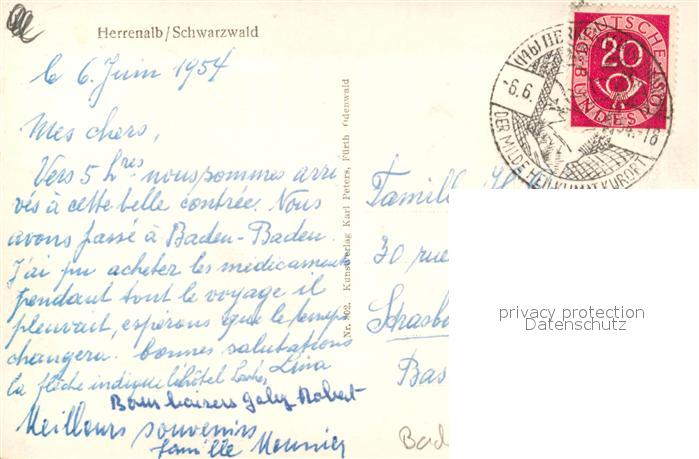 Herrenalb/Schwarzwald
le 6. Juin 1954
Mes chers,
Vers 5 hres nous sommes arri
vés à cette belle contrée. Nous
avons passé à Baden-Baden.
J'ai pu acheter les médicaments
pendant tout le voyage il
pleuvait, espérons que le temps
changera. bonnes salutations
la flèche indique l'hôtel Lina
Bons baisers Robert
Meilleurs souvenirs
famille Meunier
Nr. 402. Kunstverlag Karl Peters, Fürth Odenwald
DEUTSCHE
BUNDESPOST
20
(14b) HERRENALB
-6.6.54.-18
DER MILDE HEILKLIMATKURORT
Famille
30 rue
Strasbo
Bas
Bad
privacy protection
Datenschutz